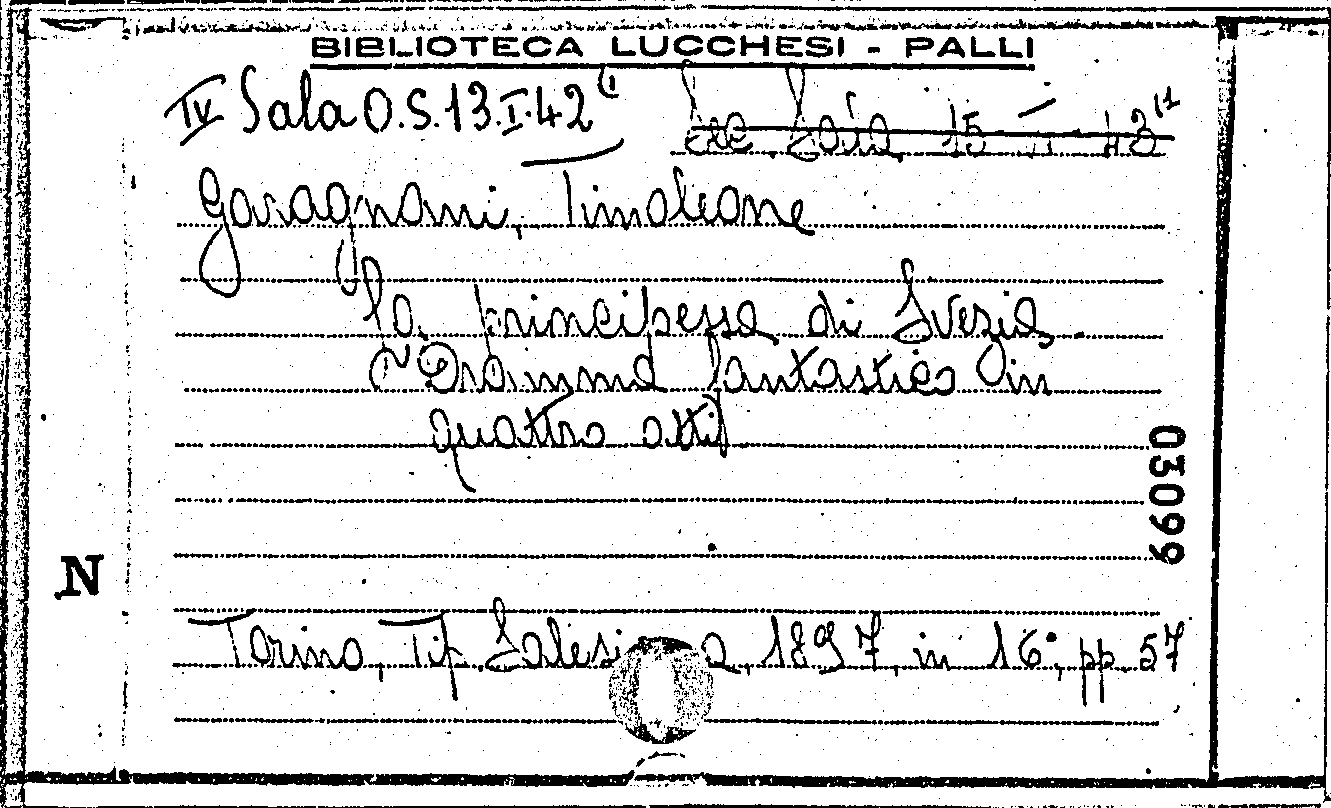 BIBLIOTECA LUCCHESI - PALLI
IV Sala O.S.13.I.42(1
Sala 15 43
Garagnani, Timoleone
La principessa di Svezia
Dramma fantastico in
quattro atti
03099
N
Torino, Tip. Salesiana, 1897, in 16°, pp. 57